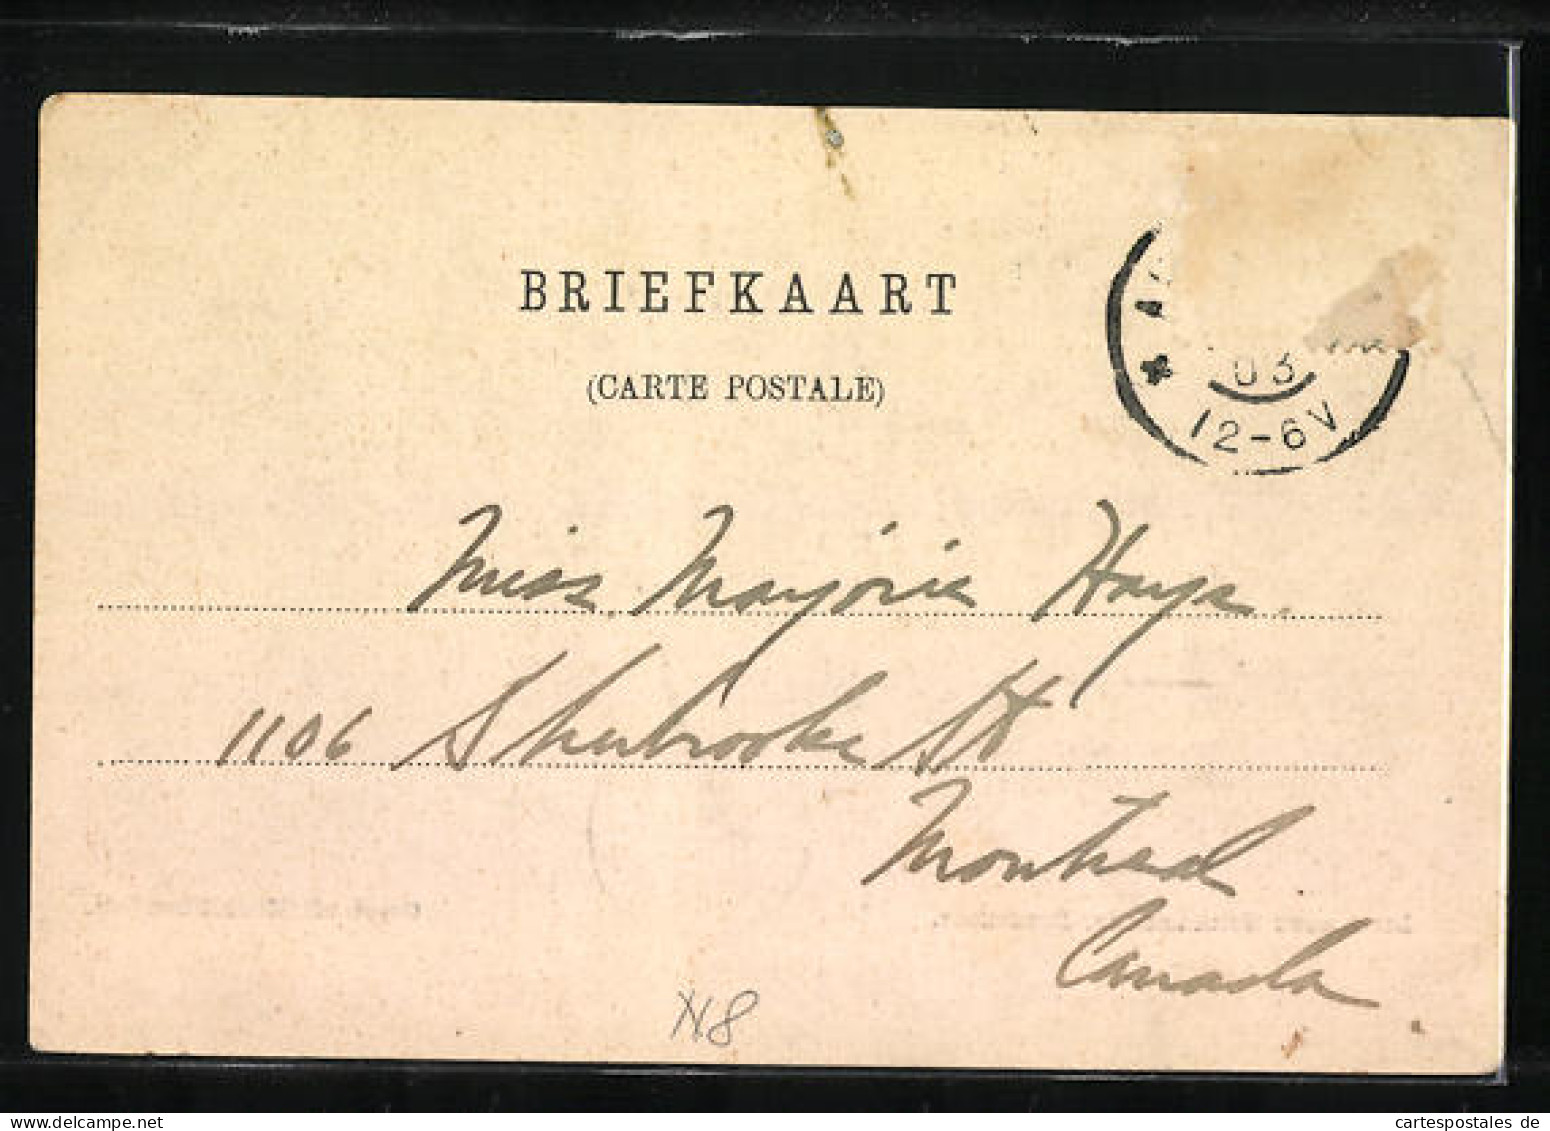 BRIEFKAART
(CARTE POSTALE)
03
12-6V
Miss Marjorie Hays
1106 Sherbrooke St
Montreal
Canada
N8
cartespostales de